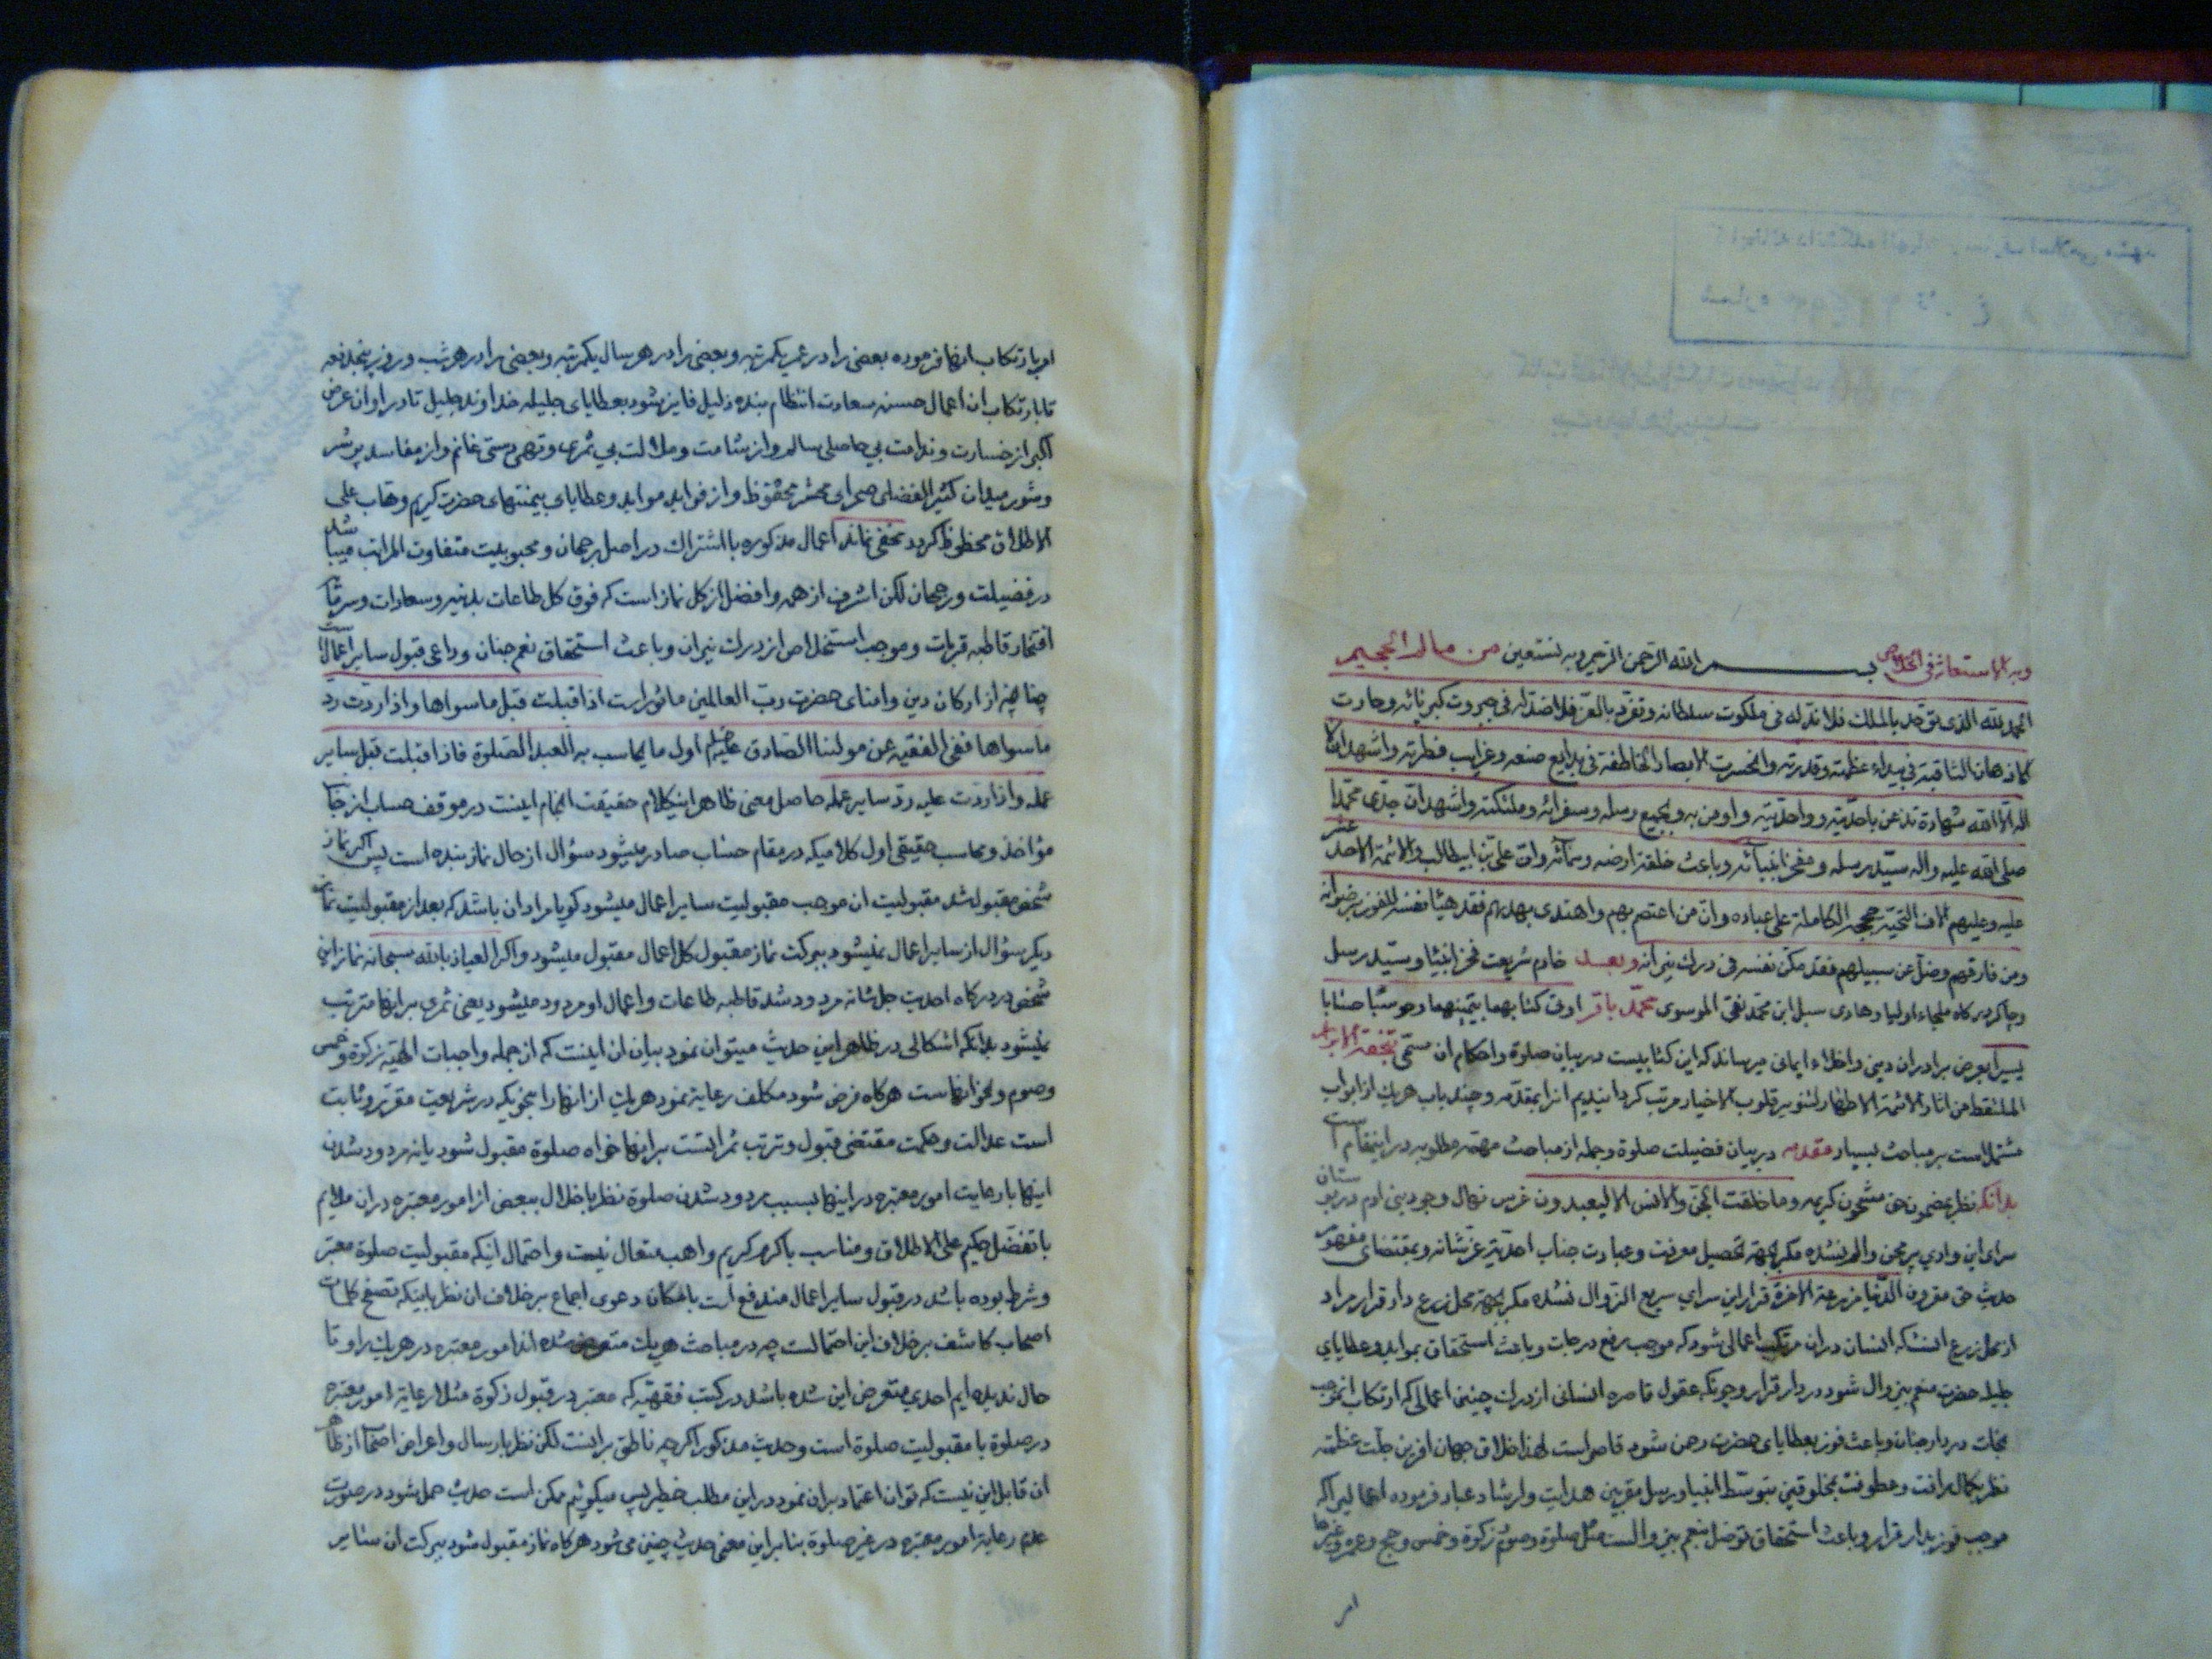 وبه الاستعانة فی الخلاص بسم الله الرحمن الرحیم وبه نستعین من مسالک الجحیم
الحمد لله الذی توحّد بالملک فلا ندّ له فی ملکوت سلطانه وتفرّد بالعزّ فلا ضدّ له فی جبروت کبریائه وحارت
الاذهان الثاقبة فی بیداء عظمته وقدرته وانحسرت الابصار الخاطفة فی بدایع صنعه وغرایب فطرته واشهد ان لا
اله الّا الله شهادة تذعن باحدّیته وواحدّیته واومن به وبجمیع رسله وسفرائه وملئکته واشهد انّ جدّی محمّداً
صلی الله علیه واله سیّد رسله ومفخر انبیائه وباعث خلقة ارضه وسمائه وانّ علی بن ابیطالب والائمة الاحد عشر
علیه وعلیهم الاف التحیّة حججه الکاملة علی عباده وانّ من اعتصم بهم واهتدی بهدیهم فقد هیّئا نفسه للفوز برضوانه
ومن فارقهم وضلّ عن سبیلهم فقد مکّن نفسه فی درک نیرانه وبعد خادم شریعت فخر انبیا وسیّد رسل
وچاکر درکاه ملجاء اولیا وهادی سبل ابن محمّد نقی الموسوی محمّد باقر اوتی کتابهما بیمینهما وحوسبا حسابا
یسیرا بعرض برادران دینی واخلاء ایمانی میرساند که این کتابیست در بیان صلوة واحکام ان مسمّی بتحفة الابرار
الملتقط من اثار الائمة الاطهار لتنویر قلوب الاخیار مرتب کردانیدیم انرا بمقدّمه وچند باب هریک از ابواب
مشتمل است بر مباحث بسیار مقدمه در بیان فضیلت صلوة وجمله از مباحث مهمّه مطلوبه در اینمقام است
بدانکه نظر بمضمون حق مشحون کریمه وما خلقت الجن والانس الا لیعبدون غرس نهال وجود بنی ادم در بوستان
سرای این وادی پر محن والم نشده مکر بجهة تحصیل معرفت وعبادت جناب احدّیة عز شانه وبمقتضای مفهوم
حدیث حق مقرون الدنیا مزرعة الاخرة قرار این سرای سریع الزوال نشده مکر بجهة محل زرع دار قرار مراد
از محل زرع انستکه انسان در ان مرتکب اعمالی شود که موجب رفع درجات وباعث استحقاق بمواید وعطایای
جلیله حضرت منعم بیزوال شود در دار قرار وچونکه عقول قاصره انسانی از درک چنین اعمالی که ارتکاب ان موجب
نجات در دار جنان وباعث فوز بعطایای حضرت رحمن شود قاصر است لهذا خلاق جهان افرین جلّت عظمته
نظر بکمال رافت وعطوفت بمخلوقین بتوسّط انبیا ورسل مقربین هدایت وارشاد عباد فرموده اعمالیرا که
موجب فوز بدار قرار وباعث استحقاق توصل بنعم بیزوالست مثل صلوة وصوم وزکوة وخمس وحج وعمره وغیرها
امر
امر بارتکاب انها فرموده بعضی را در عمر یکمرتبه وبعضی را در هر سال یکمرتبه وبعضی را در هر شب وروز پنجدفعه
تا بارتکاب ان اعمال حسنه سعادت انتظام بنده ذلیل فایز شود بعطایای جلیله خداوند جلیل تا در اوان عرض
اکبر از خسارت وندامت بی حاصلی سالم واز شامت وملالت بی ثمری وتهی دستی غانم واز مفاسد پر شر
وشور میدان کثیر الفضلی صحرای محشر محفوظ واز فواید مواید وعطایای بیمنتهای حضرت کریم وهاب علی
الاطلاق محظوظ کردد مخفی نماند اعمال مذکوره با اشتراک در اصل رجحان ومحبوبیت متفاوت المراتب میباشد
در فضیلت ورجحان لکن اشرف از همه وافضل از کل نماز است که فوق کل طاعات بدنیه وسعادات وسر
افتخار قاطبه قربات وموجب استخلاص از درک نیران وباعث استحقاق نعم جنان وداعی قبول سایر اعمال است
چنانچه از ارکان دین وامنای حضرت ربّ العالمین ماثور است اذا قبلت قبل ما سواها واذا ردّت ردّ
ما سواها ففی الفقیه عن مولینا الصادق علیه السلام اول ما یحاسب به العبد الصّلوة فاذا قبلت قبل سایر
عمله واذا ردّت علیه ردّ سایر عمله حاصل معنی ظاهر اینکلام حقیقت انجام اینست در موقف حساب از جانب
مؤاخذ ومحاسب حقیقی اول کلامیکه در مقام حساب صادر میشود سؤال از حال نماز بنده است پس اکر نماز
شخص مقبول شد مقبولیت ان موجب مقبولیت سایر اعمال میشود کویا مراد ان باشد که بعد از مقبولیت نماز
دیکر سؤال از سایر اعمال نمیشود ببرکت نماز مقبول کل اعمال مقبول میشود واکر العیاذ بالله سبحانه نماز این
شخص در درکاه احدیت جل شانه مردود شد قاطبه طاعات واعمال او مردود میشود یعنی ثمری بر انها مترتب
نمیشود بدانکه اشکالی در ظاهر این حدیث میتوان نمود بیان ان اینست که از جمله واجبات الهیّه زکوة وخمس
وصوم ونحو انهاست هرکاه فرض شود مکلف رعایة نمود هریک از انها را بنحویکه در شریعت مقرّر وثابت
است عدالت وحکمت مقتضی قبول وترتب ثمراتست بر انها خواه صلوة مقبول شود یا نه مردود شدن
اینها با رعایت امور معتبره در اینها بسبب مردود شدن صلوة نظر باخلال ببعض از امور معتبره در ان ملایم
با تفضّل حکیم علی الاطلاق ومناسب با کرم کریم واهب متعال نیست واحتمال اینکه مقبولیت صلوة معتبر
وشرط بوده باشد در قبول سایر اعمال مندفع است بامکان دعوی اجماع بر خلاف ان نظر باینکه تصفح کلمات
اصحاب کاشف بر خلاف این احتمالست چه در مباحث هریک متعرض شده اند امور معتبره در هریک را وتا
حال ندیده ایم احدی متعرض این شده باشد در کتب فقهیّه که معتبر در قبول زکوة مثلا رعایة امور معتبره
در صلوة یا مقبولیت صلوة است وحدیث مذکور اکرچه ناطق بر اینست لکن نظر بارسال واعراض اصحاب از ظاهر
ان قابل این نیست که توان اعتماد بر ان نمود در این مطلب خطیر پس میکوئیم ممکن است حدیث حمل شود در صورت
عدم رعایة امور معتبره در غیر صلوة بنابراین معنی حدیث چنین می شود هرکاه نماز مقبول شود ببرکت ان سایر